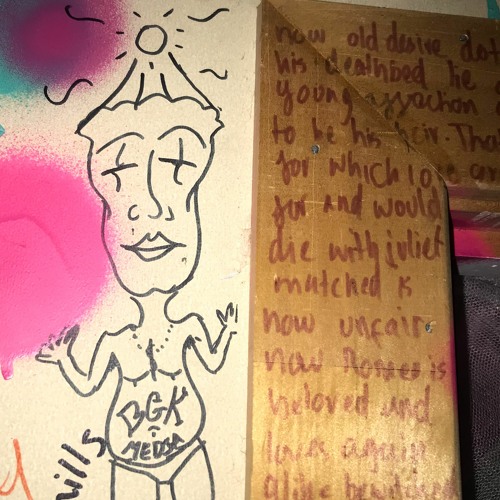 now old desire do
his deathbed lie
young affection
to be his heir. Tha
for which love
for and would
die with juliet
matched is
now unfair
now Romeo is
beloved and
loves again
alike
BGK
MEDSA
ills